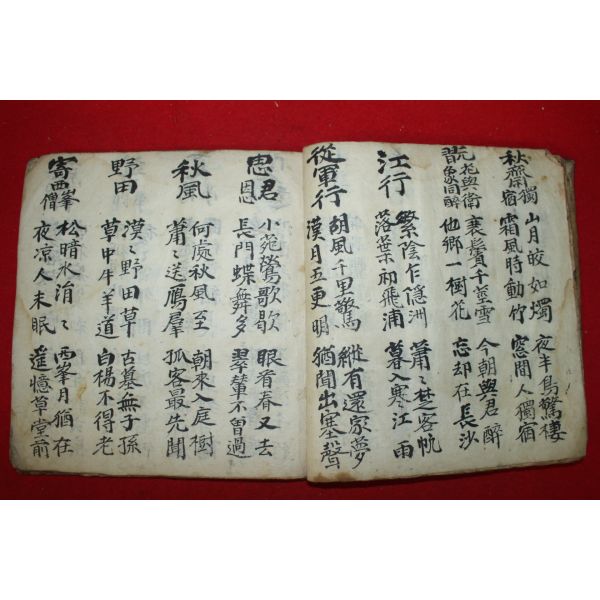 秋齋獨宿
山月皎如燭
霜風時動竹
夜半鳥驚棲
窓間人獨宿
翫花與衛象同醉
衰鬢千莖雪
他鄉一樹花
今朝與君醉
忘却在長沙
江行
繁陰乍隱洲
落葉初飛浦
蕭〻楚客帆
暮入寒江雨
從軍行
胡風千里驚
漢月五更明
縱有還家夢
猶聞出塞聲
思君恩
小苑鶯歌歇
長門蝶舞多
眼看春又去
翠輦不曾過
秋風
何處秋風至
蕭〻送鴈羣
朝來入庭樹
孤客最先聞
野田
漠〻野田草
草中牛羊道
古墓無子孫
白楊不得老
寄西峯僧
松暗水涓〻
夜凉人未眠
西峯月猶在
遙憶草堂前